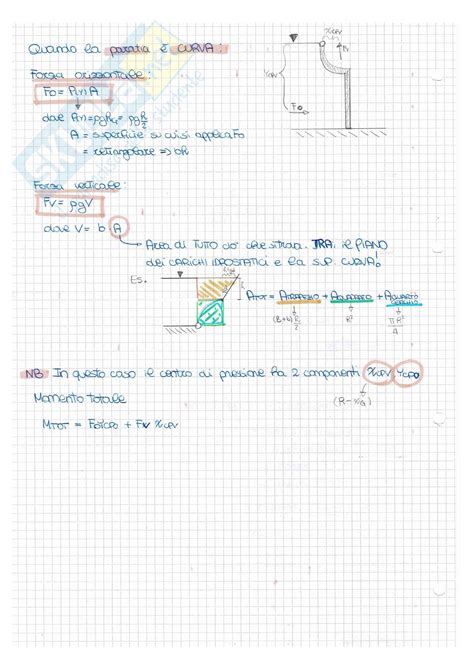 Quando la paratia è CURVA:
Forza orizzontale:
Fo = P(Y) A
dove P(Y) = ρg h/2
A = superficie su cui si applica Fo
= rettangolare => bh
Forza verticale:
Fv = ρgV
dove V = b A
Area di TUTTO ciò che sta TRA il PIANO
dei CARICHI IDROSTATICI e la sup CURVA!
Es.
ATOT = ATRAPEZIO + AQUADRATO + AQUARTO CERCHIO
(B+b)h/2
R²
πR²/4
NB In questo caso il centro di pressione ha 2 componenti XCPV YCPO
Momento totale
MTOT = FoYCPO + Fv XCPV